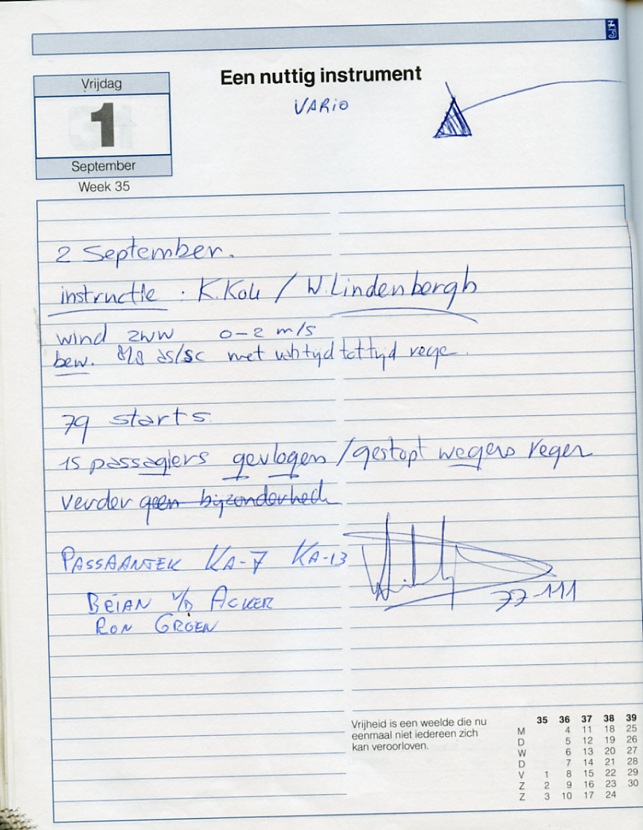 Vrijdag
1
September
Week 35
Een nuttig instrument
VARIO
2 September.
instructie : K.Kou / W.Lindenbergh
wind ZWW 0-2 m/s
bew. 8/8 as/sc met van tyd tot tyd rege
79 starts
15 passagiers gevlogen / gestopt wegens regen
verder geen byzonderhed
PASSAANTEK KA-7 KA-13
BRIAN V/D ACKER
RON GROEN
77-111
Vrijheid is een weelde die nu
eenmaal niet iedereen zich
kan veroorloven.
35 36 37 38 39
M 4 11 18 25
D 5 12 19 26
W 6 13 20 27
D 7 14 21 28
V 1 8 15 22 29
Z 2 9 16 23 30
Z 3 10 17 24